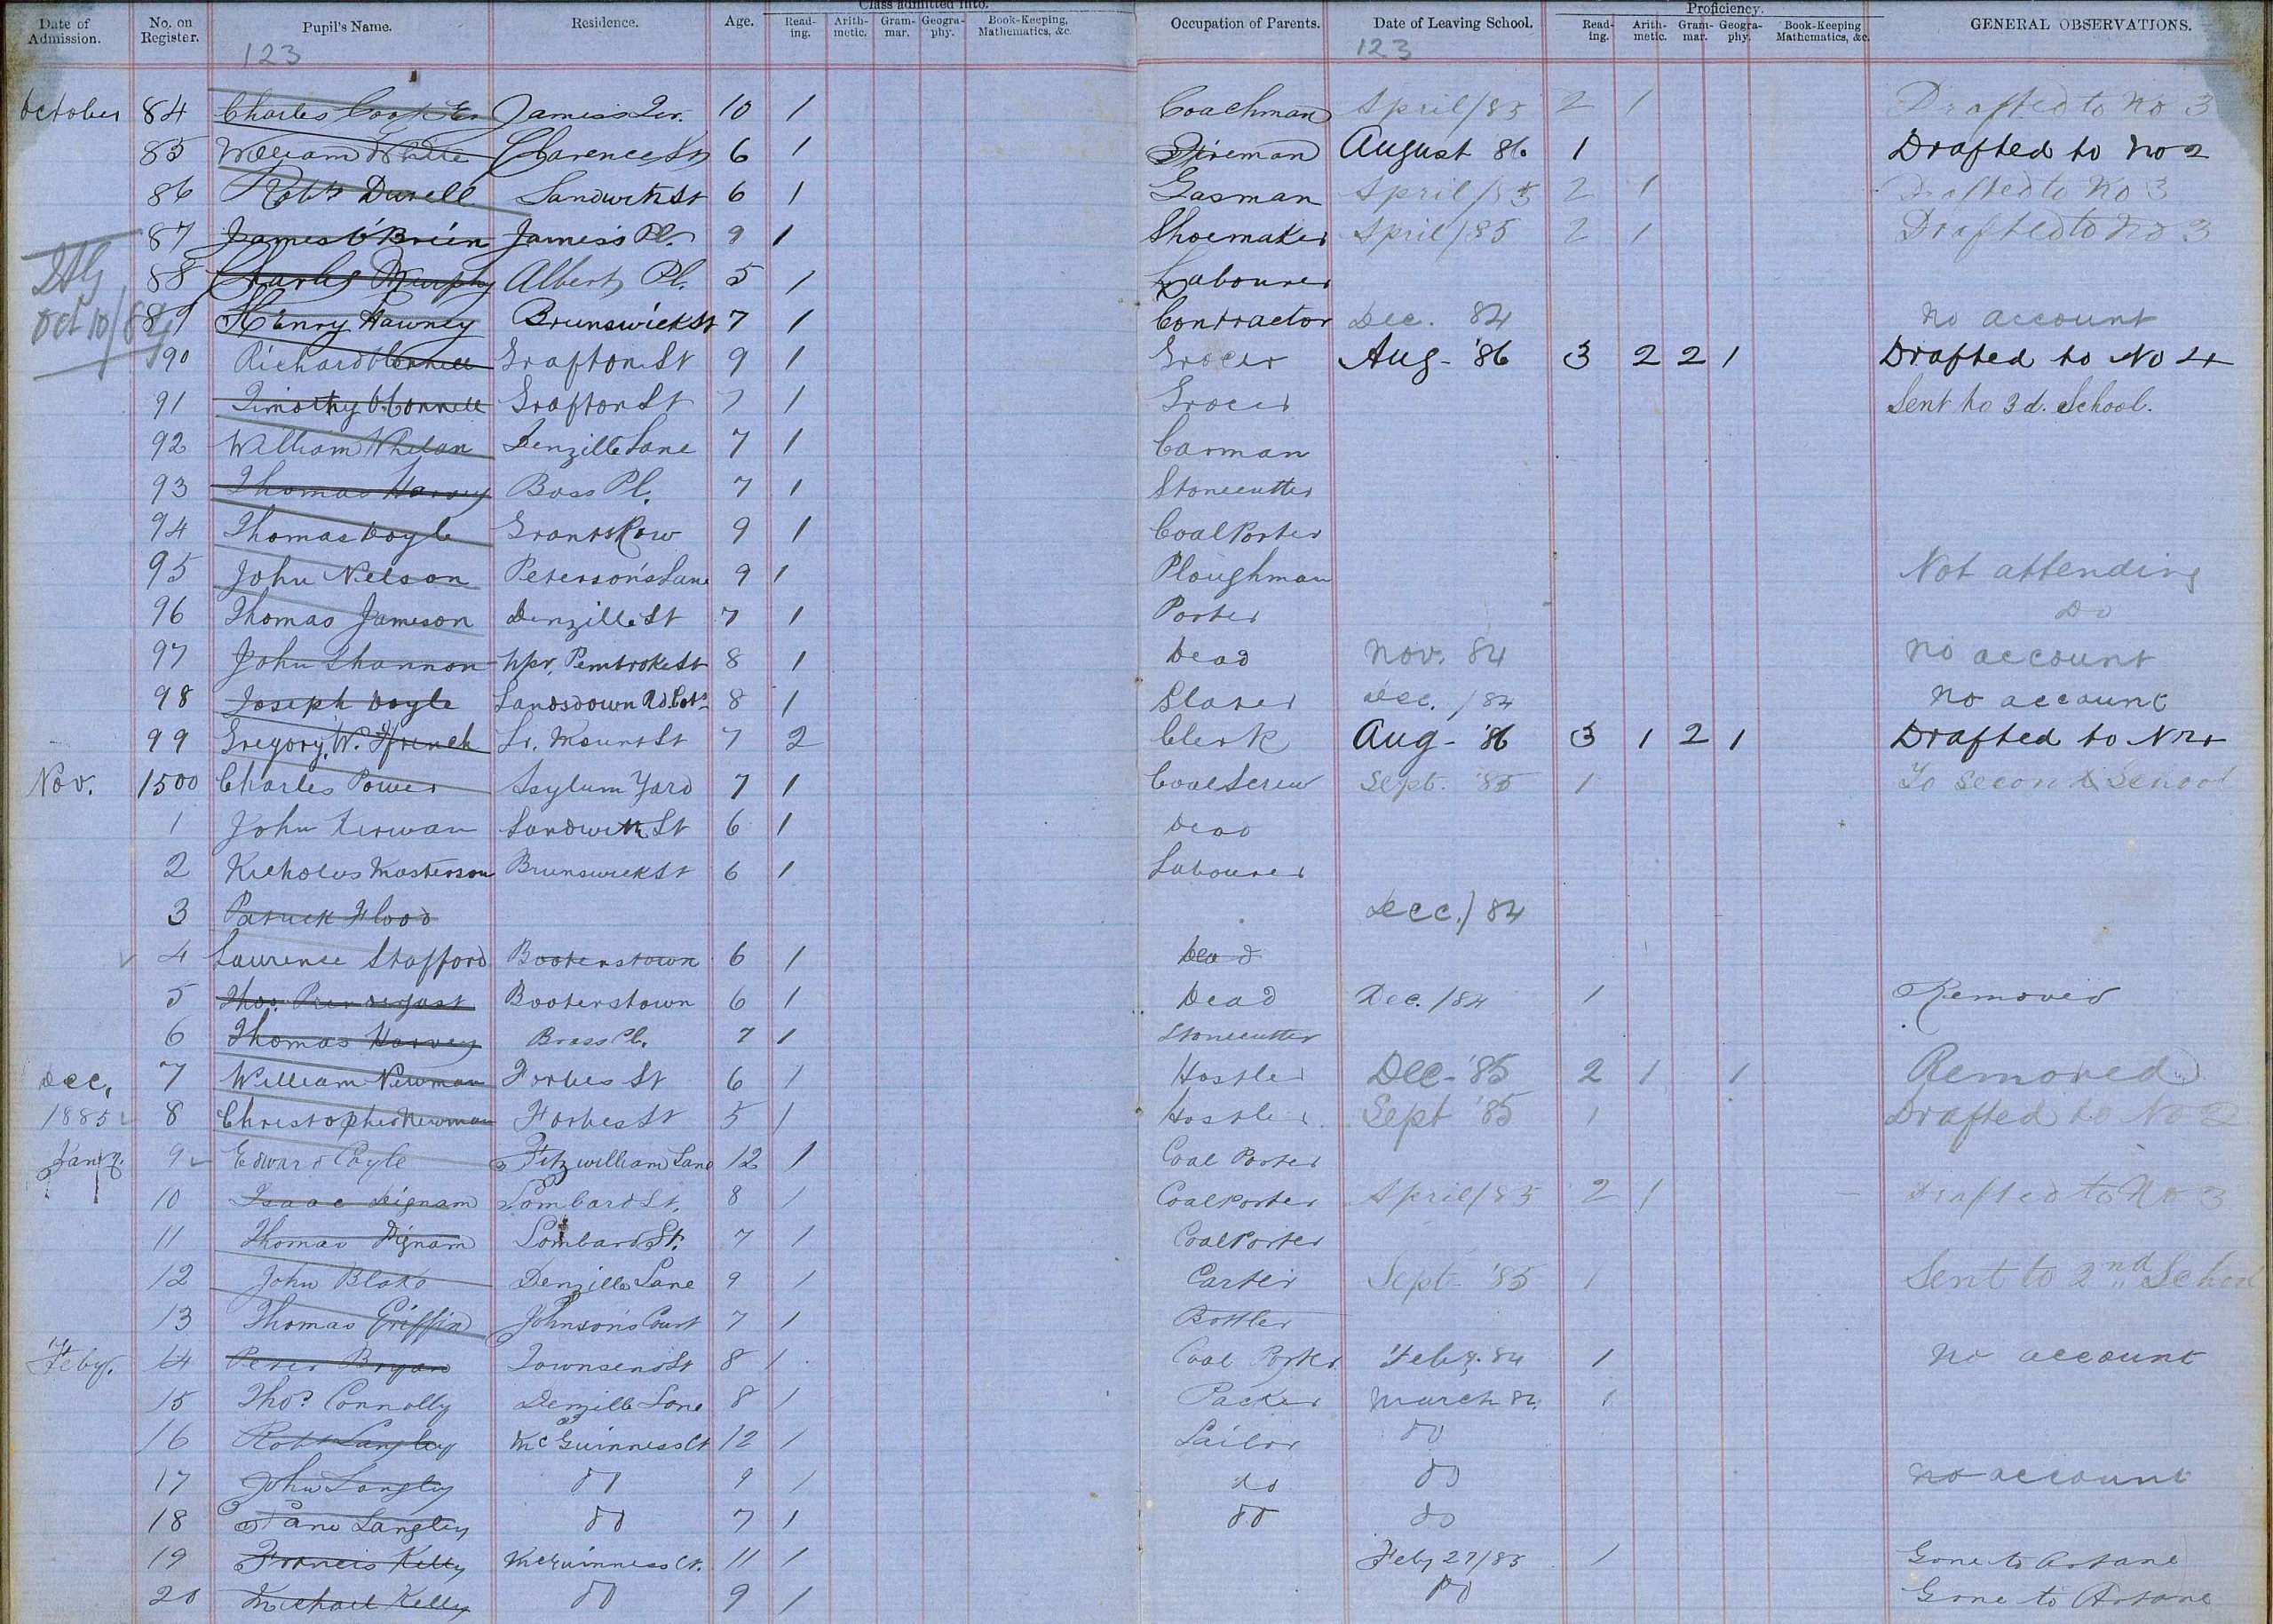 Class admitted into. Proficiency.
Date of Admission. No. on Register. Pupil's Name. Residence. Age. Read-ing. Arith-metic. Gram-mar. Geogra-phy. Book-Keeping, Mathematics, &c. Occupation of Parents. Date of Leaving School. Read-ing. Arith-metic. Gram-mar. Geogra-phy. Book-Keeping Mathematics, &c. GENERAL OBSERVATIONS.
123 123
October 84 Charles James's 10 1 Coachman April/85 2 1 Drafted to No 3
85 William White Clarence St 6 1 Fireman August '86 1 Drafted to No 2
86 Robt Durell Sandwith St 6 1 Gasman April/85 2 1 Drafted to No 3
87 James O'Brien James's Pl. 9 1 Shoemaker April/85 2 1 Drafted to No 3
88 Charles Murphy Albert Pl. 5 1 Labourer
Oct 10/84
89 Henry Tawney Brunswick St 7 1 Contractor Dec. 84 No account
90 Richard Grafton St 9 1 Grocer Aug- '86 3 2 2 1 Drafted to No 4
91 Timothy O'Connell Grafton St 7 1 Grocer Sent to 3d. School.
92 William Whelan Denzille Lane 7 1 Carman
93 Thomas Harvey Boss Pl. 7 1 Stonecutter
94 Thomas Doyle Grants Row 9 1 Coal Porter
95 John Nelson Peterson's Lane 9 1 Ploughman Not attending
96 Thomas Jameson Denzille St 7 1 Porter Do
97 John Shannon Upr. Pembroke St 8 1 Dead Nov. 84 No account
98 Joseph Doyle Landsdown Rd Cots 8 1 Slater Dec. /84 No account
99 Gregory W. Ffrench Lr. Mount St 7 2 Clerk Aug- '86 3 1 2 1 Drafted to
Nov. 1500 Charles Power Asylum Yard 7 1 Coal Screw Sept. '85 1 To second School
1 John Kirwan Sandwith St 6 1 Dead
2 Nicholas Masterson Brunswick St 6 1 Labourer
3 Patrick Flood Dec./84
4 Laurence Stafford Booterstown 6 1 Dead
5 Thos. Prendergast Booterstown 6 1 Dead Dec./84 1 Removed
6 Thomas Harvey Brass Pl. 7 1 Stonecutter
Dec. 7 William Newman Forbes St 6 1 Hostler Dec- '85 2 1 1 Removed
1885 8 Christopher Newman Forbes St 5 1 Hostler Sept '85 1 Drafted to No 2
Jany. 9 Edward Coyle Fitzwilliam Lane 12 1 Coal Porter
10 Isaac Dignam Lombard St. 8 1 Coal Porter April/85 2 1 Drafted to No 3
11 Thomas Dignam Lombard St. 7 1 Coal Porter
12 John Blake Denzille Lane 9 1 Carter Sept- '85 1 Sent to 2nd School
13 Thomas Griffin Johnson's Court 7 1 Bottler
Feby. 14 Peter Bryan Townsend St 8 1 Coal Porter Feby. 84 1 No account
15 Thos Connolly Denzille Lane 8 1 Packer March 84. 1
16 Robt Langley McGuinness Ct 12 1 Sailor do
17 John Langley do 9 1 do do No account
18 Langley do 7 1 do do
19 Francis Kelly McGuinness Ct. 11 1 Feby 27/85 1 Gone to Artane
20 Michael Kelly do 9 1 do Gone to Artane